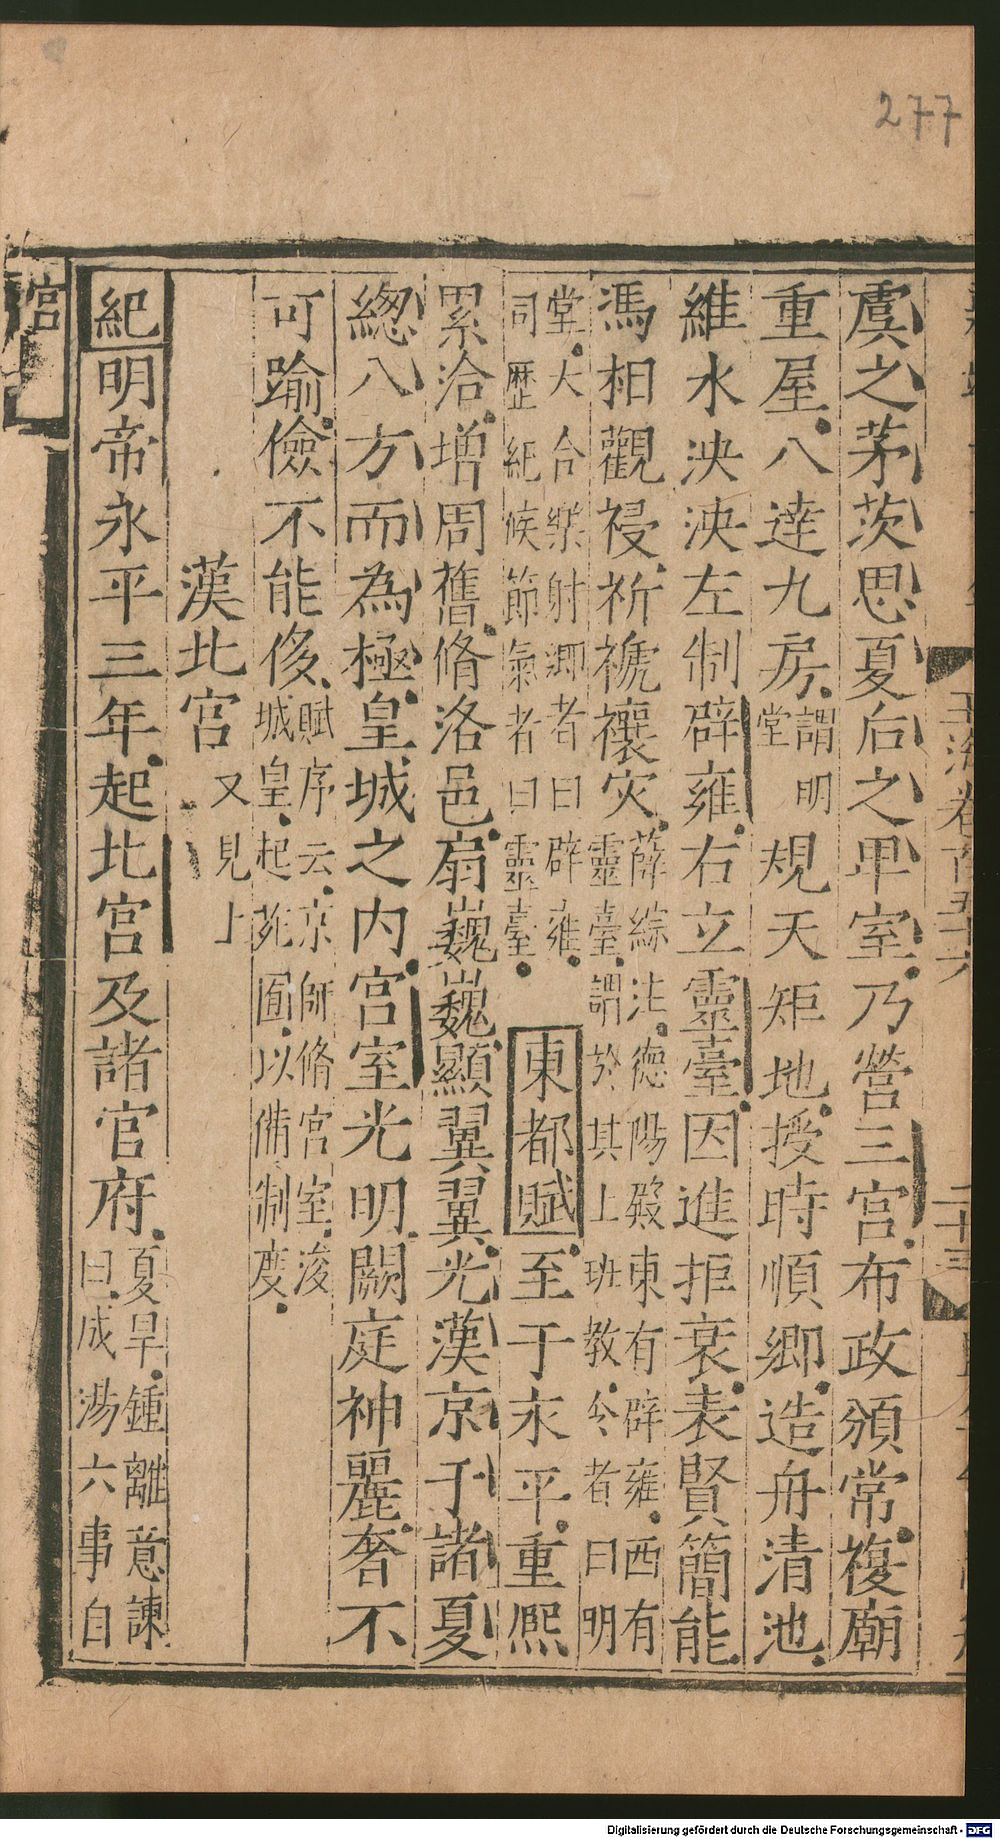 277
玉海卷百五十六
二十三
虞之茅茨思夏后之卑室乃營三宮布政頒常複廟
重屋八達九房謂明堂規天矩地授時順卿造舟清池
維水泱泱左制辟雍右立靈臺因進拒衰表賢簡能
馮相觀祲祈禠禳灾薛綜注德陽殿東有辟雍西有靈臺謂於其上班教令者曰明
堂大合樂射鄉者曰辟雍司歷紀候節氣者曰靈臺東都賦至于永平重熙
累洽增周舊脩洛邑扇巍巍顯翼翼光漢京于諸夏
緫八方而為極皇城之内宮室光明闕庭神麗奢不
可踰儉不能侈賦序云京師脩宮室浚城皇起苑囿以備制度
漢北宮又見上
紀明帝永平三年起北宮及諸官府夏旱鍾離意諫曰成湯六事自
宮
Digitalisierung gefördert durch die Deutsche Forschungsgemeinschaft - DFG